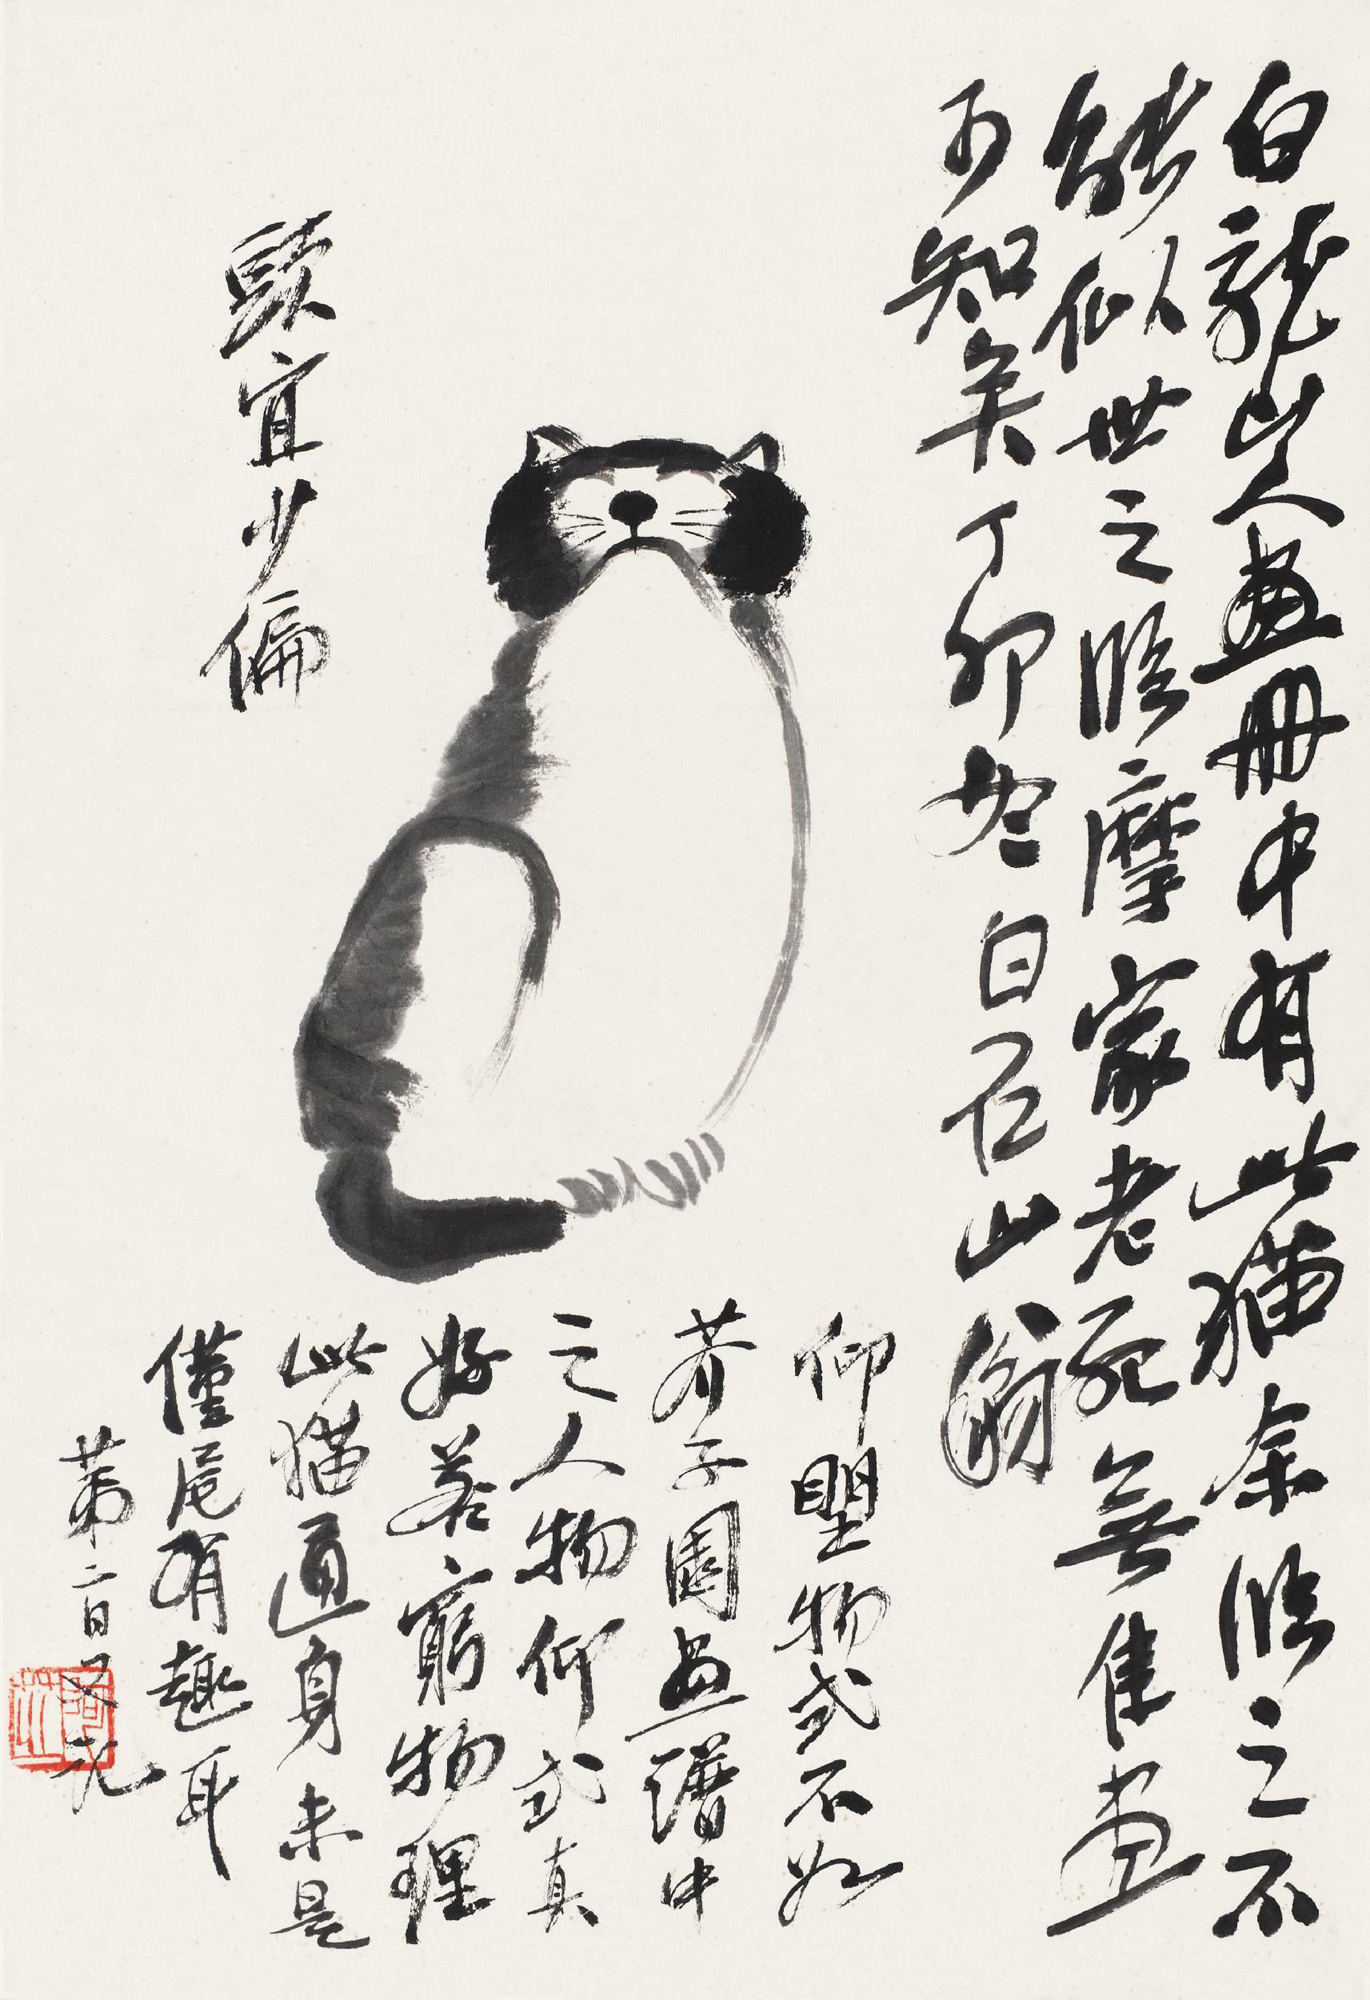 白龍山人畫冊中有此猫余臨之不
能似世之臨摩家老死無佳画
可知矣丁卯白石山翁
頭宜少偏
仰望物式不如
芥子園画譜中
之人物仰式真
好若窮物理
此猫通身未是
僅尾有趣耳
第二日又記
阿芝